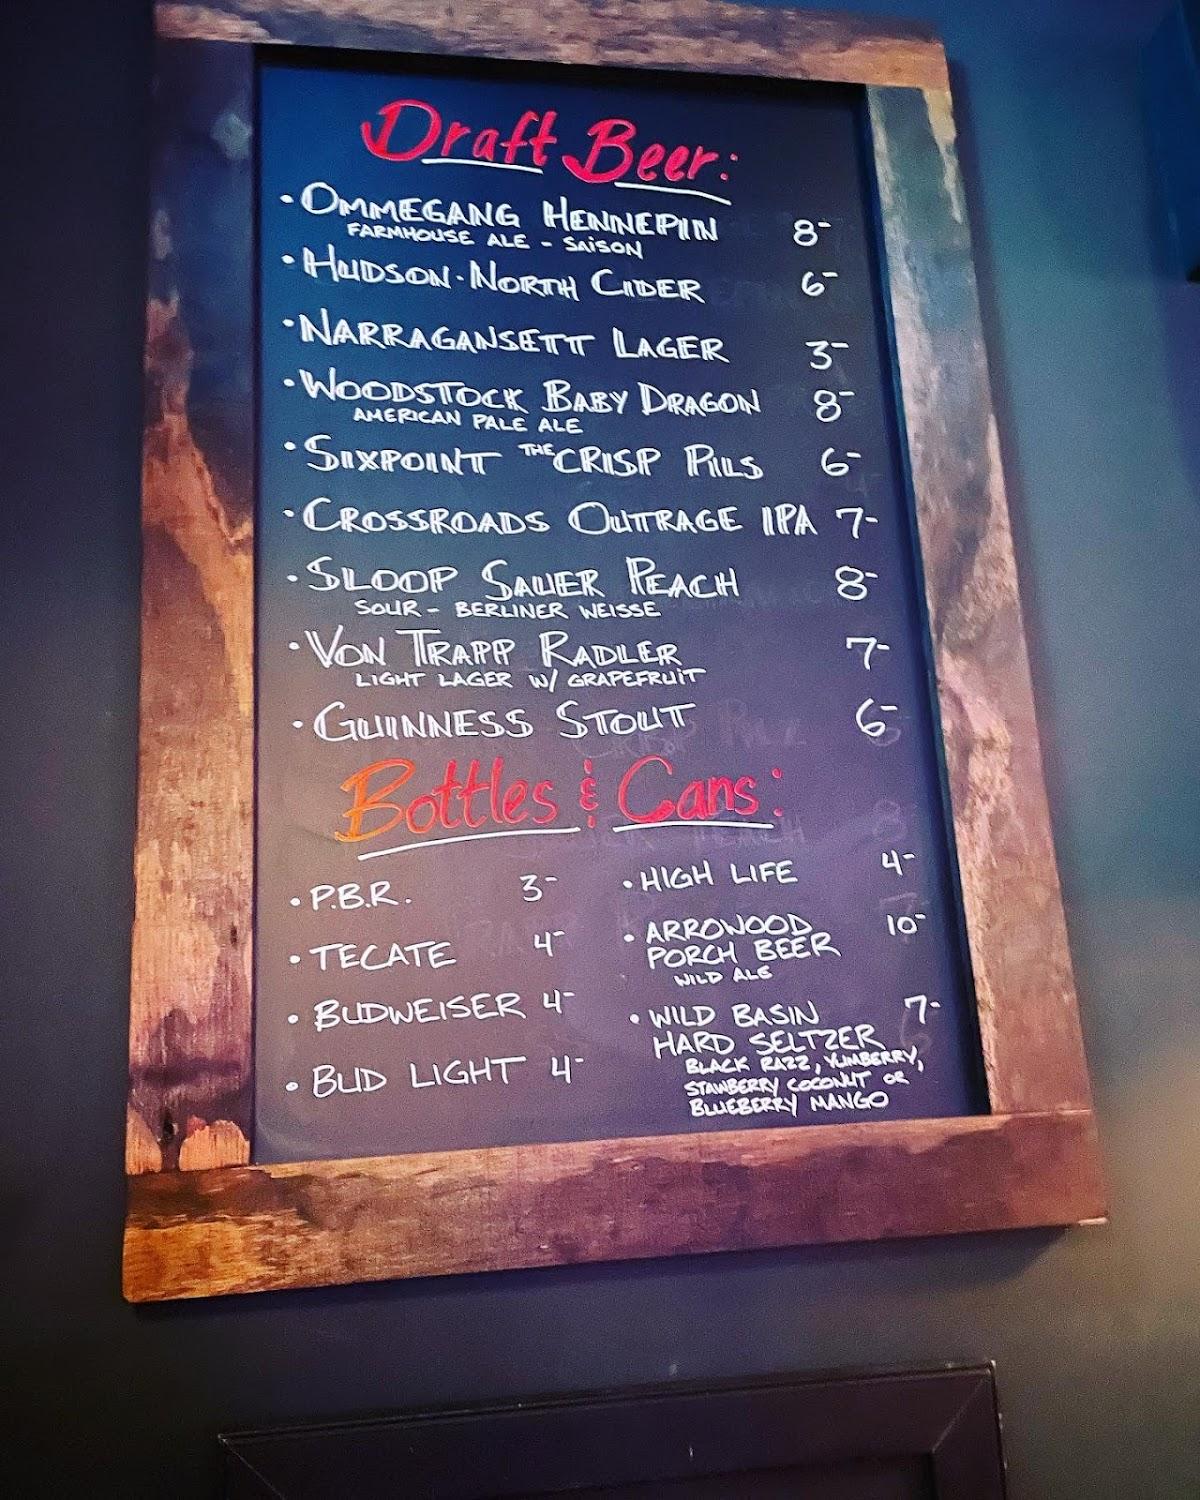 Draft Beer:
• OMMEGANG HENNEPIN 8-
FARMHOUSE ALE - SAISON
• HUDSON-NORTH CIDER 6-
• NARRAGANSETT LAGER 3-
• WOODSTOCK BABY DRAGON 8-
AMERICAN PALE ALE
• SIXPOINT THE CRISP PILS 6-
• CROSSROADS OUTRAGE IPA 7-
• SLOOP SAUER PEACH 8-
SOUR - BERLINER WEISSE
• VON TRAPP RADLER 7-
LIGHT LAGER W/ GRAPEFRUIT
• GUINNESS STOUT 6-
Bottles & Cans:
• P.B.R. 3-
• TECATE 4-
• BUDWEISER 4-
• BUD LIGHT 4-
• HIGH LIFE 4-
• ARROWOOD 10-
PORCH BEER
WILD ALE
• WILD BASIN 7-
HARD SELTZER
BLACK RAZZ, YUMBERRY,
STAWBERRY COCONUT OR
BLUEBERRY MANGO